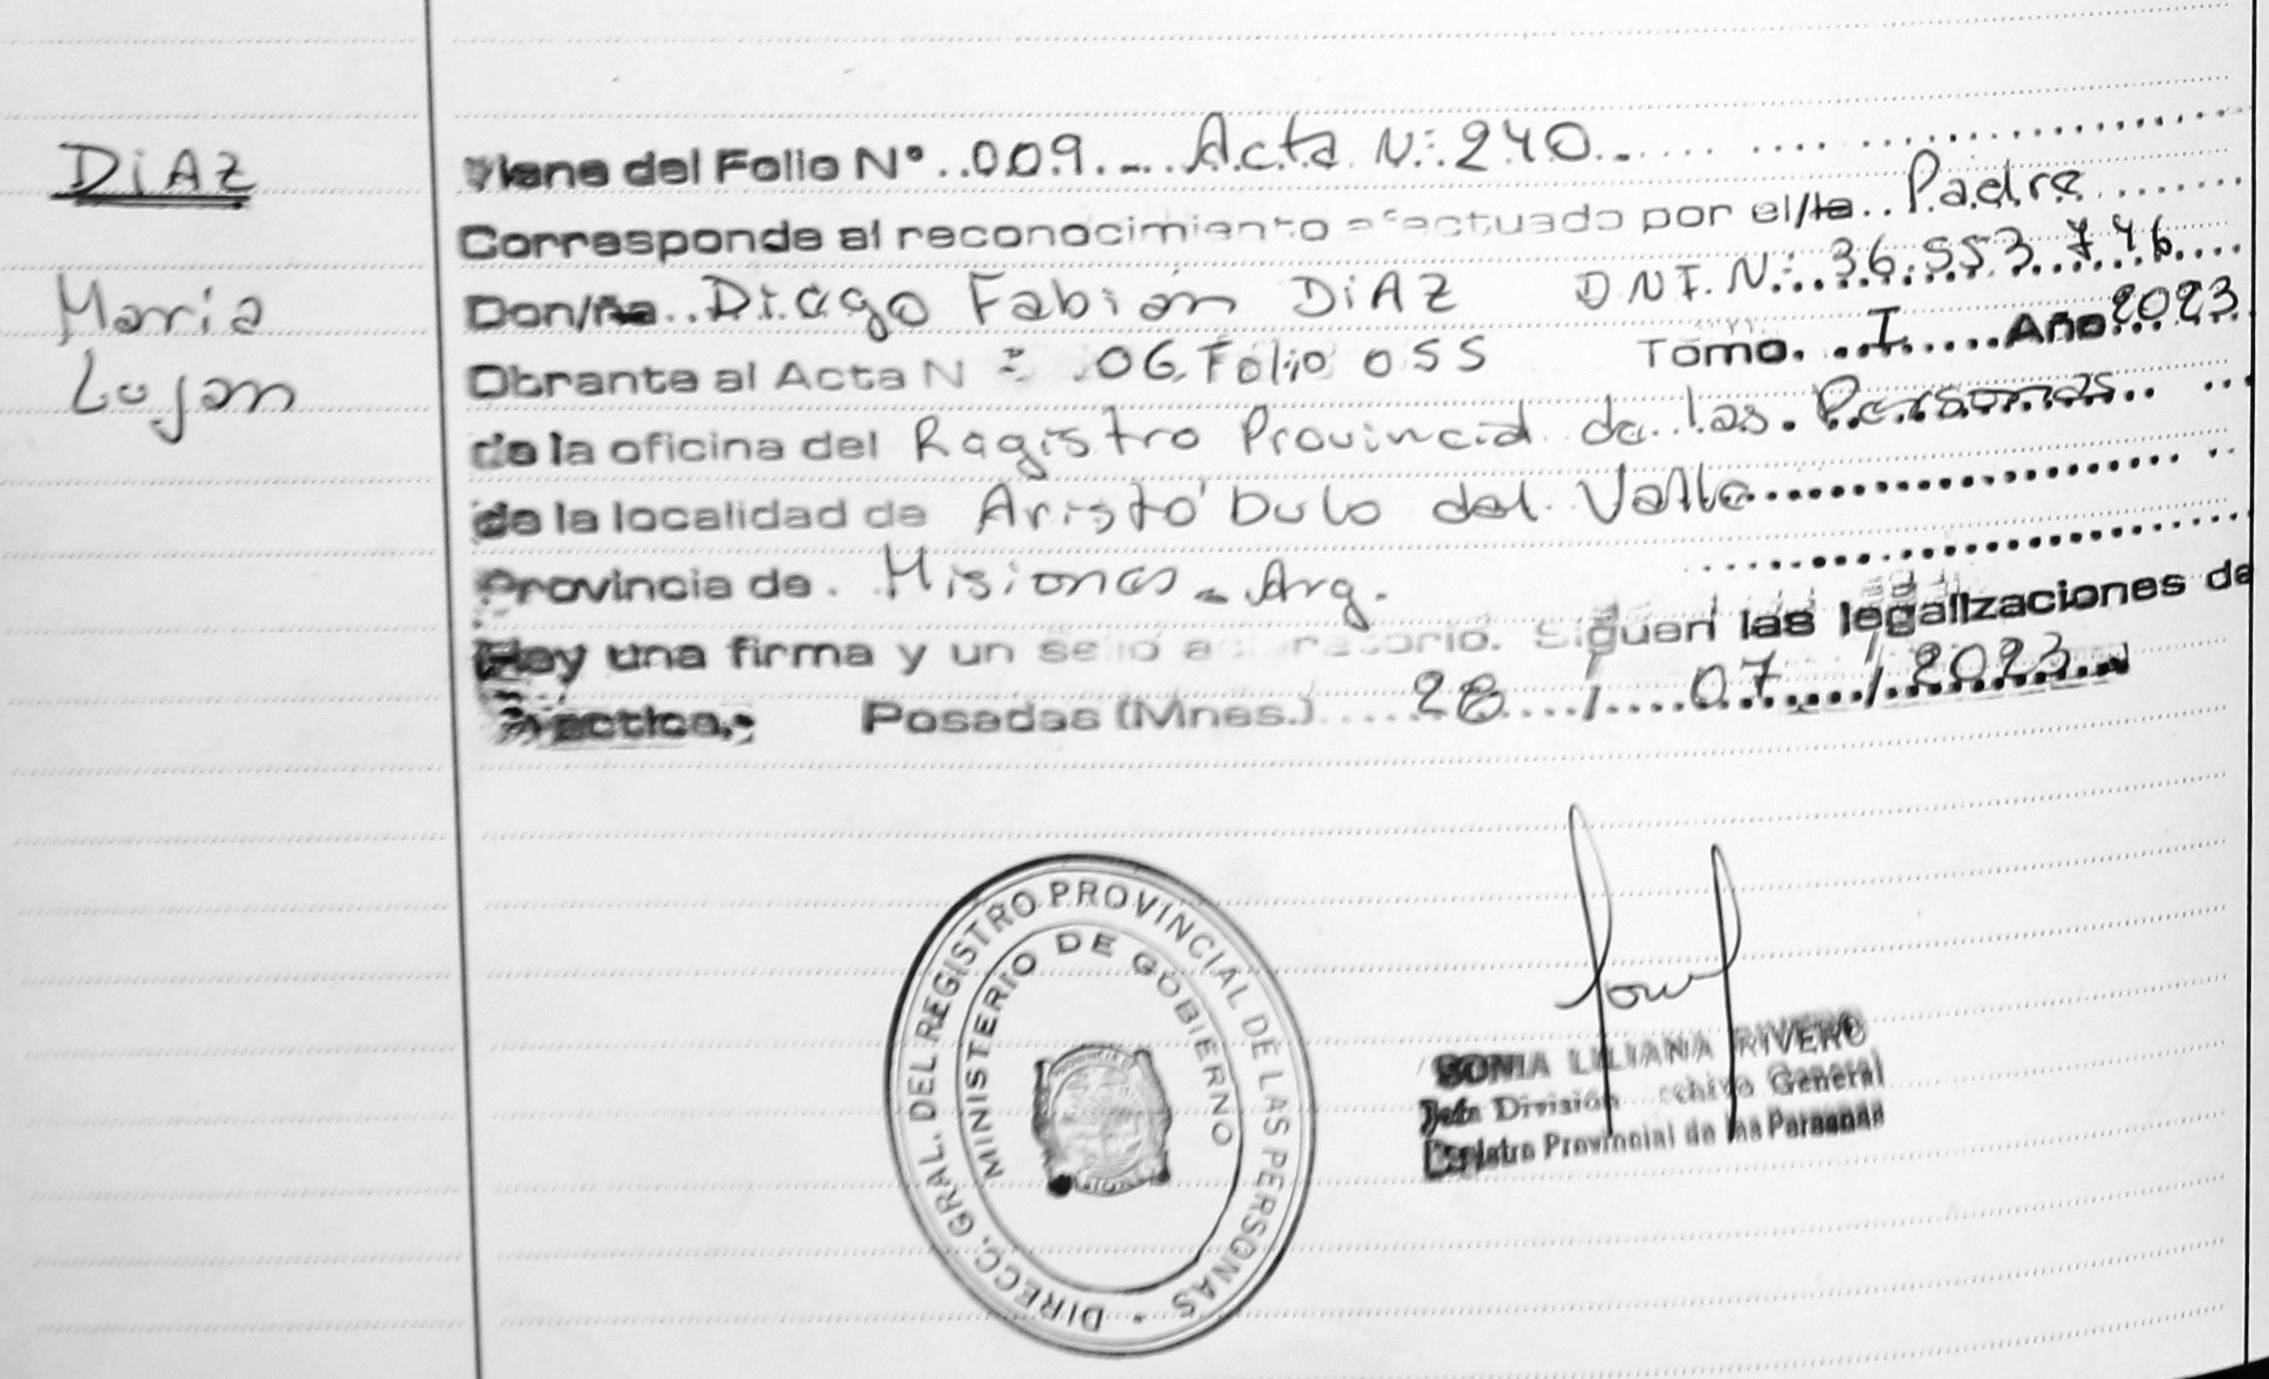 DiAZ
Maria
Lujan
Viene del Folio N° ..009.-... Acta N°: 240.-....
Corresponde al reconocimiento efectuado por el/la.. Padre
Don/ña.. Diego Fabian DiAZ DNI. N°: 36.553.746....
Obrante al Acta N° 06. Folio 055 Tomo. ...I.....Año 2023
de la oficina del Registro Provincial de las Personas..
de la localidad de Aristóbulo del Valle
Provincia de . Misiones - Arg.
Hay una firma y un sello aclaratorio. Siguen las legalizaciones de
práctica.- Posadas (Mnes.) .... 28 ..../.... 07 ..../.. 2023
DIRECC. GRAL. DEL REGISTRO PROVINCIAL DE LAS PERSONAS -
MINISTERIO DE GOBIERNO
SONIA LILIANA RIVERO
Jefa División Archivo General
Registro Provincial de las Personas